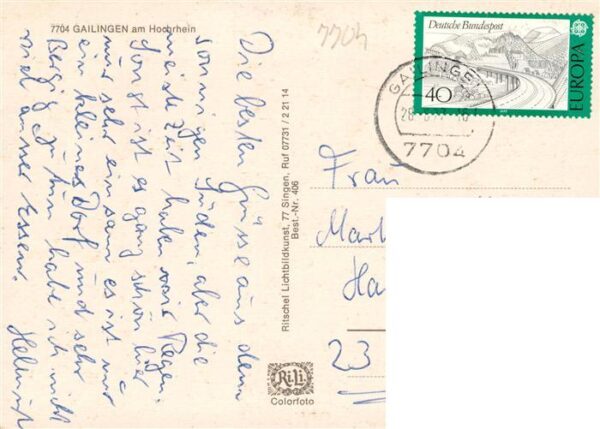 7704 GAILINGEN am Hochrhein
7704
Deutsche Bundespost
40
EUROPA
GAILINGEN
7704
Die besten Grüsse aus dem
sonnigen Süden, aber die
meiste Zeit haben wir Regen.
Sonst ist es ganz schön hier
nur sehr einsam es ist nur
ein kleines Dorf und sehr
Bergig zu tun habe ich nicht
viel ausser Essen.
Helmut
Ritschel Lichtbildkunst, 77 Singen, Ruf 07731 / 2 21 14
Best.-Nr. 406
Ri.Li.
Colorfoto
Frau
23